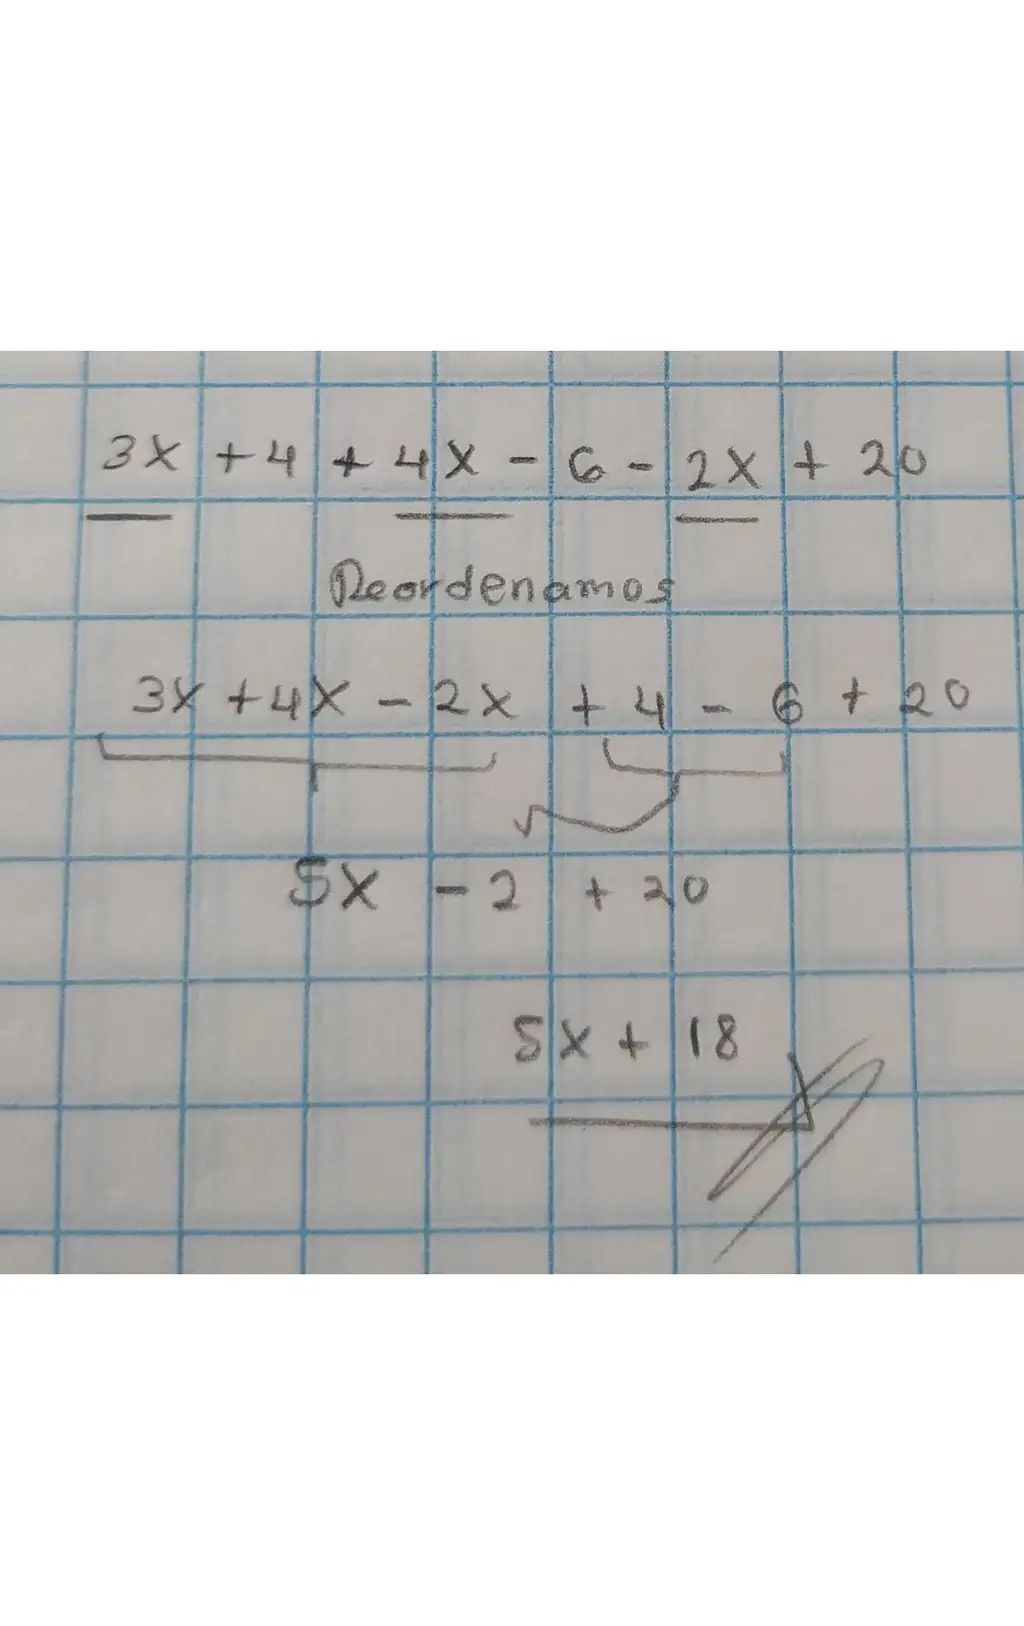 3x + 4 + 4x - 6 - 2x + 20
Reordenamos
3x + 4x - 2x + 4 - 6 + 20
5x - 2 + 20
5x + 18